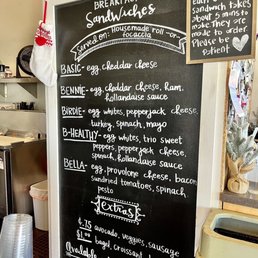 BREAKFAST
Sandwiches
Served on: Housemade roll or
focaccia
BASIC- egg, cheddar cheese
BENNIE- egg, cheddar cheese, ham,
hollandaise sauce
BIRDIE- egg whites, pepperjack cheese,
turkey, spinach, mayo
B-HEALTHY- egg whites, trio sweet
peppers, pepperjack cheese,
spinach, hollandaise sauce
BELLA- egg, provolone cheese, bacon,
sundried tomatoes, spinach,
pesto
Extras
$.75 avocado, veggies, sausage
$1.00 bagel, croissant
Available
sandwich takes
about 5 minutes to
make. They are
made to order
Please be
patient